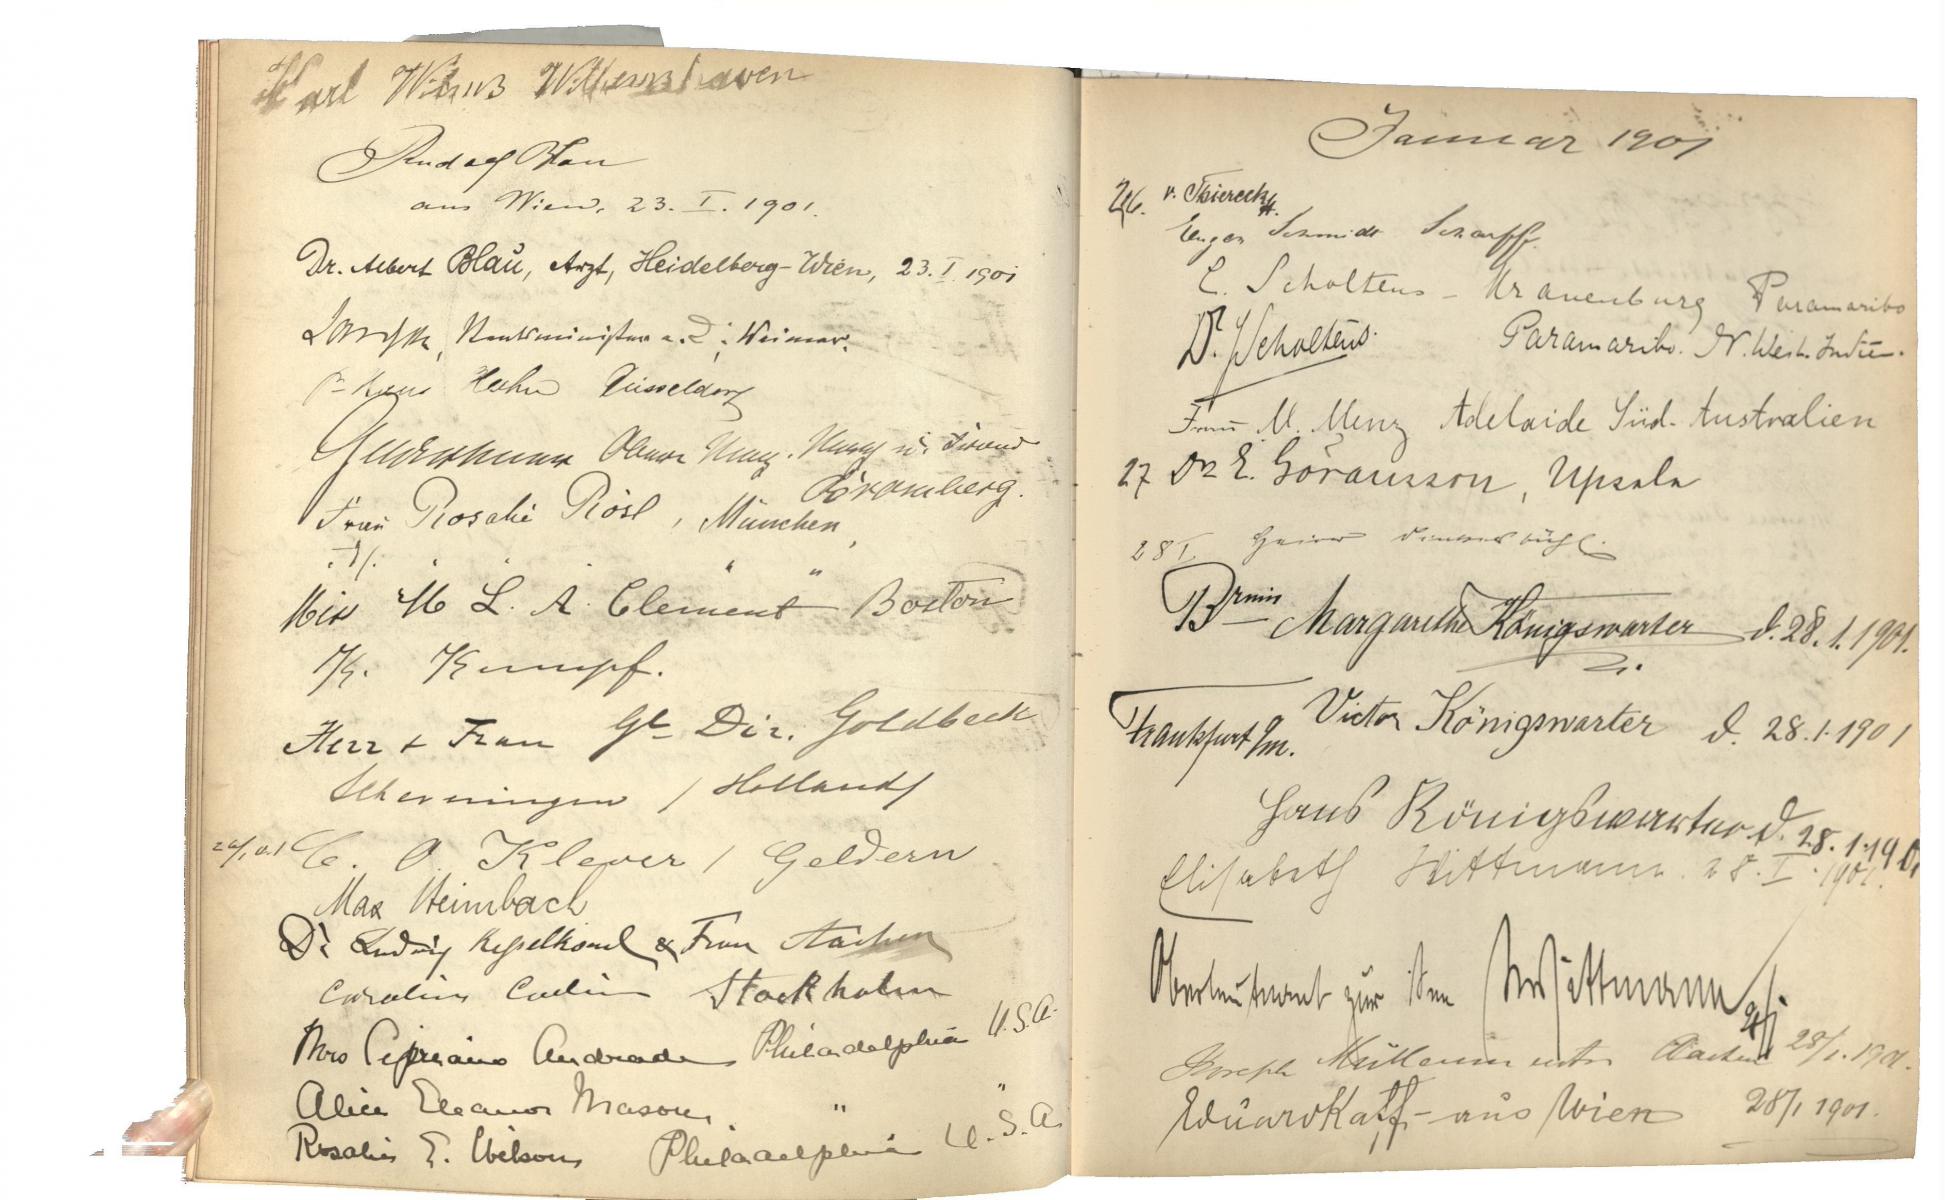 Karl Wilms Wilhelmshaven
Rudolf Blau
aus Wien, 23. I. 1901.
Dr. Albert Blau, Arzt, Heidelberg-Wien, 23. I. 1901
a. D. Weimar.
Hahn Düsseldorf
Bromberg.
Frau Rosalie Rösl, München,
" " "
Miss M. L. A. Clement Boston
K. Kumpf.
Herr + Frau Gl Dir. Goldbeck
Scheveningen / Holland
C. O. Klever / Geldern
Max Heimbach
Dr Ludwig Kesselkaul & Frau Aachen
Stockholm
Mrs Cipriano Andrade Philadelphia U.S.A.
Alice Eleanor Mason " "
Rosalie E. Wilson Philadelphia U.S.A.
Januar 1901
26. v. Thiereck
Eugen Schmidt Scharff.
E. Scholtens - Kranenburg Paramaribo
Dr. J Scholtens. Paramaribo. N. West. Indië.
Frau M. Menz Adelaide Süd-Australien
27 Dr E. Göransson, Upsala
28 I
Brnin Margarethe Königswarter d. 28.1.1901.
Frankfurt a/m. Victor Königswarter d. 28.1.1901
Hans Königswarter d. 28.1.1901
Elisabeth Wittmann. 28. I. 1901.
Oberleutnant zur See Wittmann
Joseph Aachen 28/1.1901.
Eduard Kaff - aus Wien 28/1 1901.